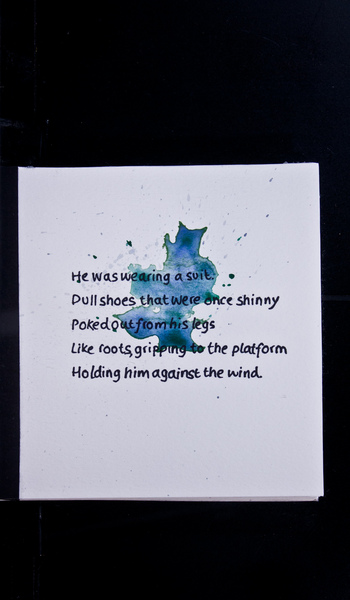 He was wearing a suit.
Dull shoes that were once shinny
Poked out from his legs
Like roots, gripping to the platform
Holding him against the wind.